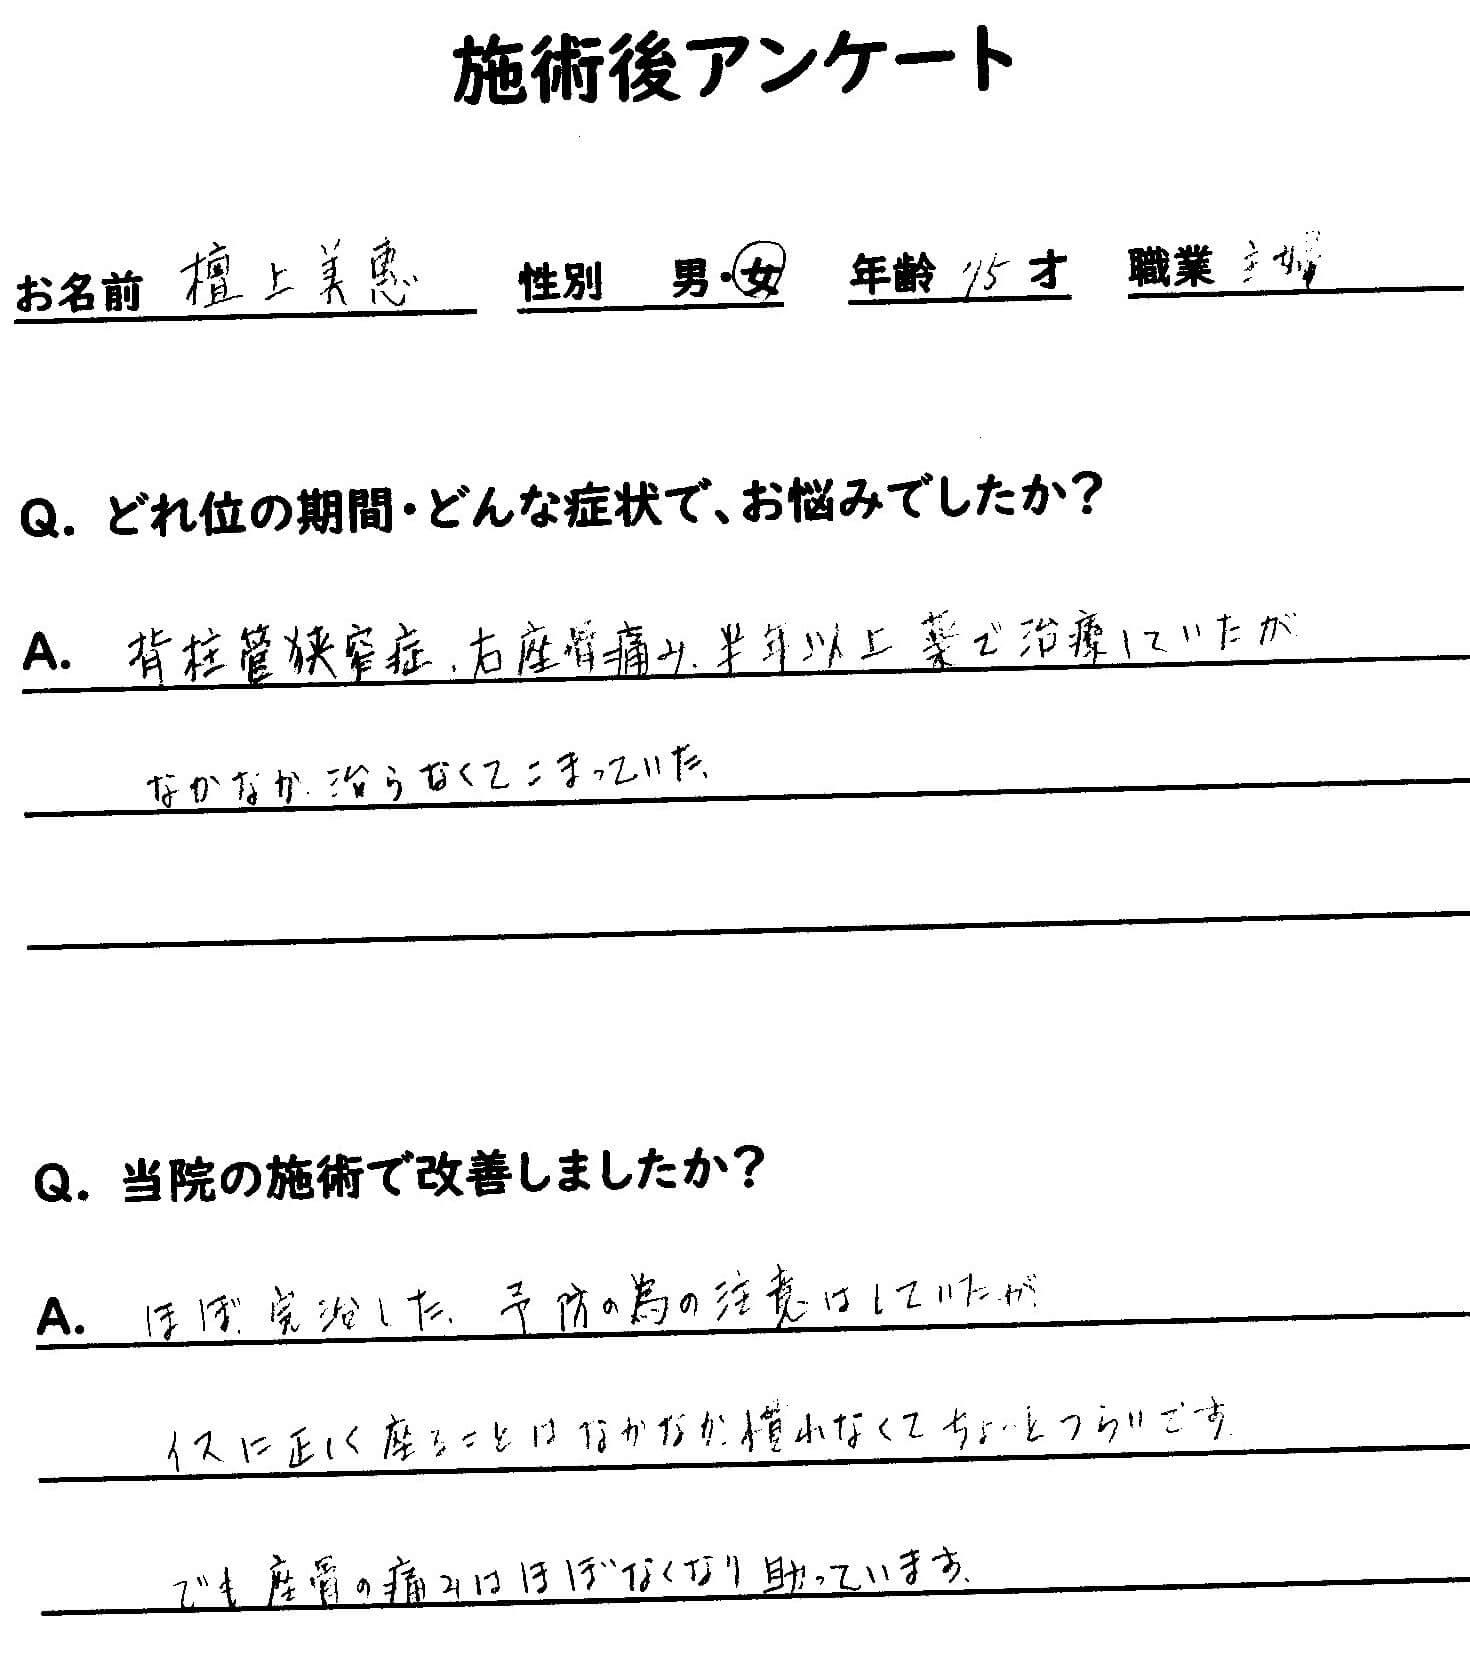 施術後アンケート
お名前 檀上美恵 性別 男・女 年齢 75才 職業 主婦
Q. どれ位の期間・どんな症状で、お悩みでしたか？
A. 背柱管狭窄症、右座骨痛み、半年以上薬で治療していたが
なかなか治らなくてこまっていた。
Q. 当院の施術で改善しましたか？
A. ほぼ完治した。予防の為の注意はしていたが
イスに正しく座ることはなかなか慣れなくてちょっとつらいです。
でも座骨の痛みはほぼなくなり助っています。